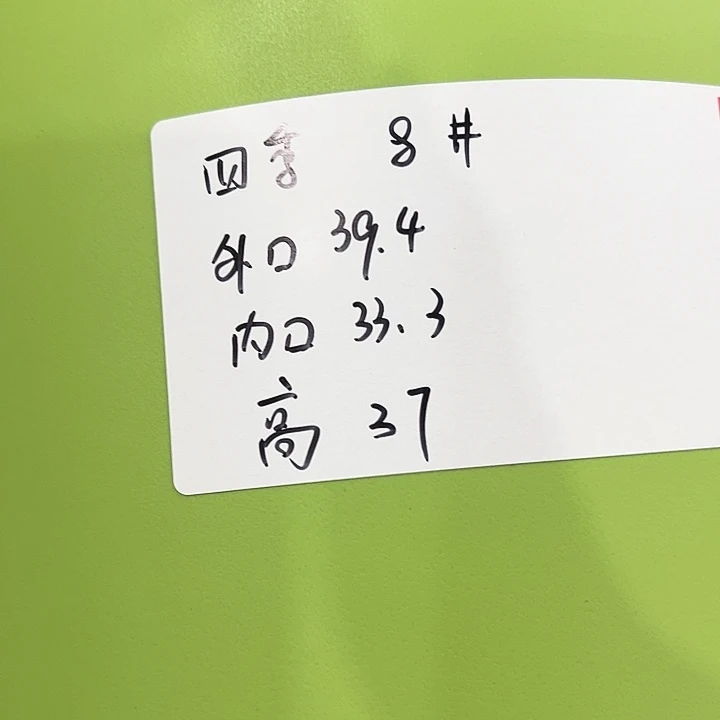 四季 8#
外口 39.4
内口 33.3
高 37